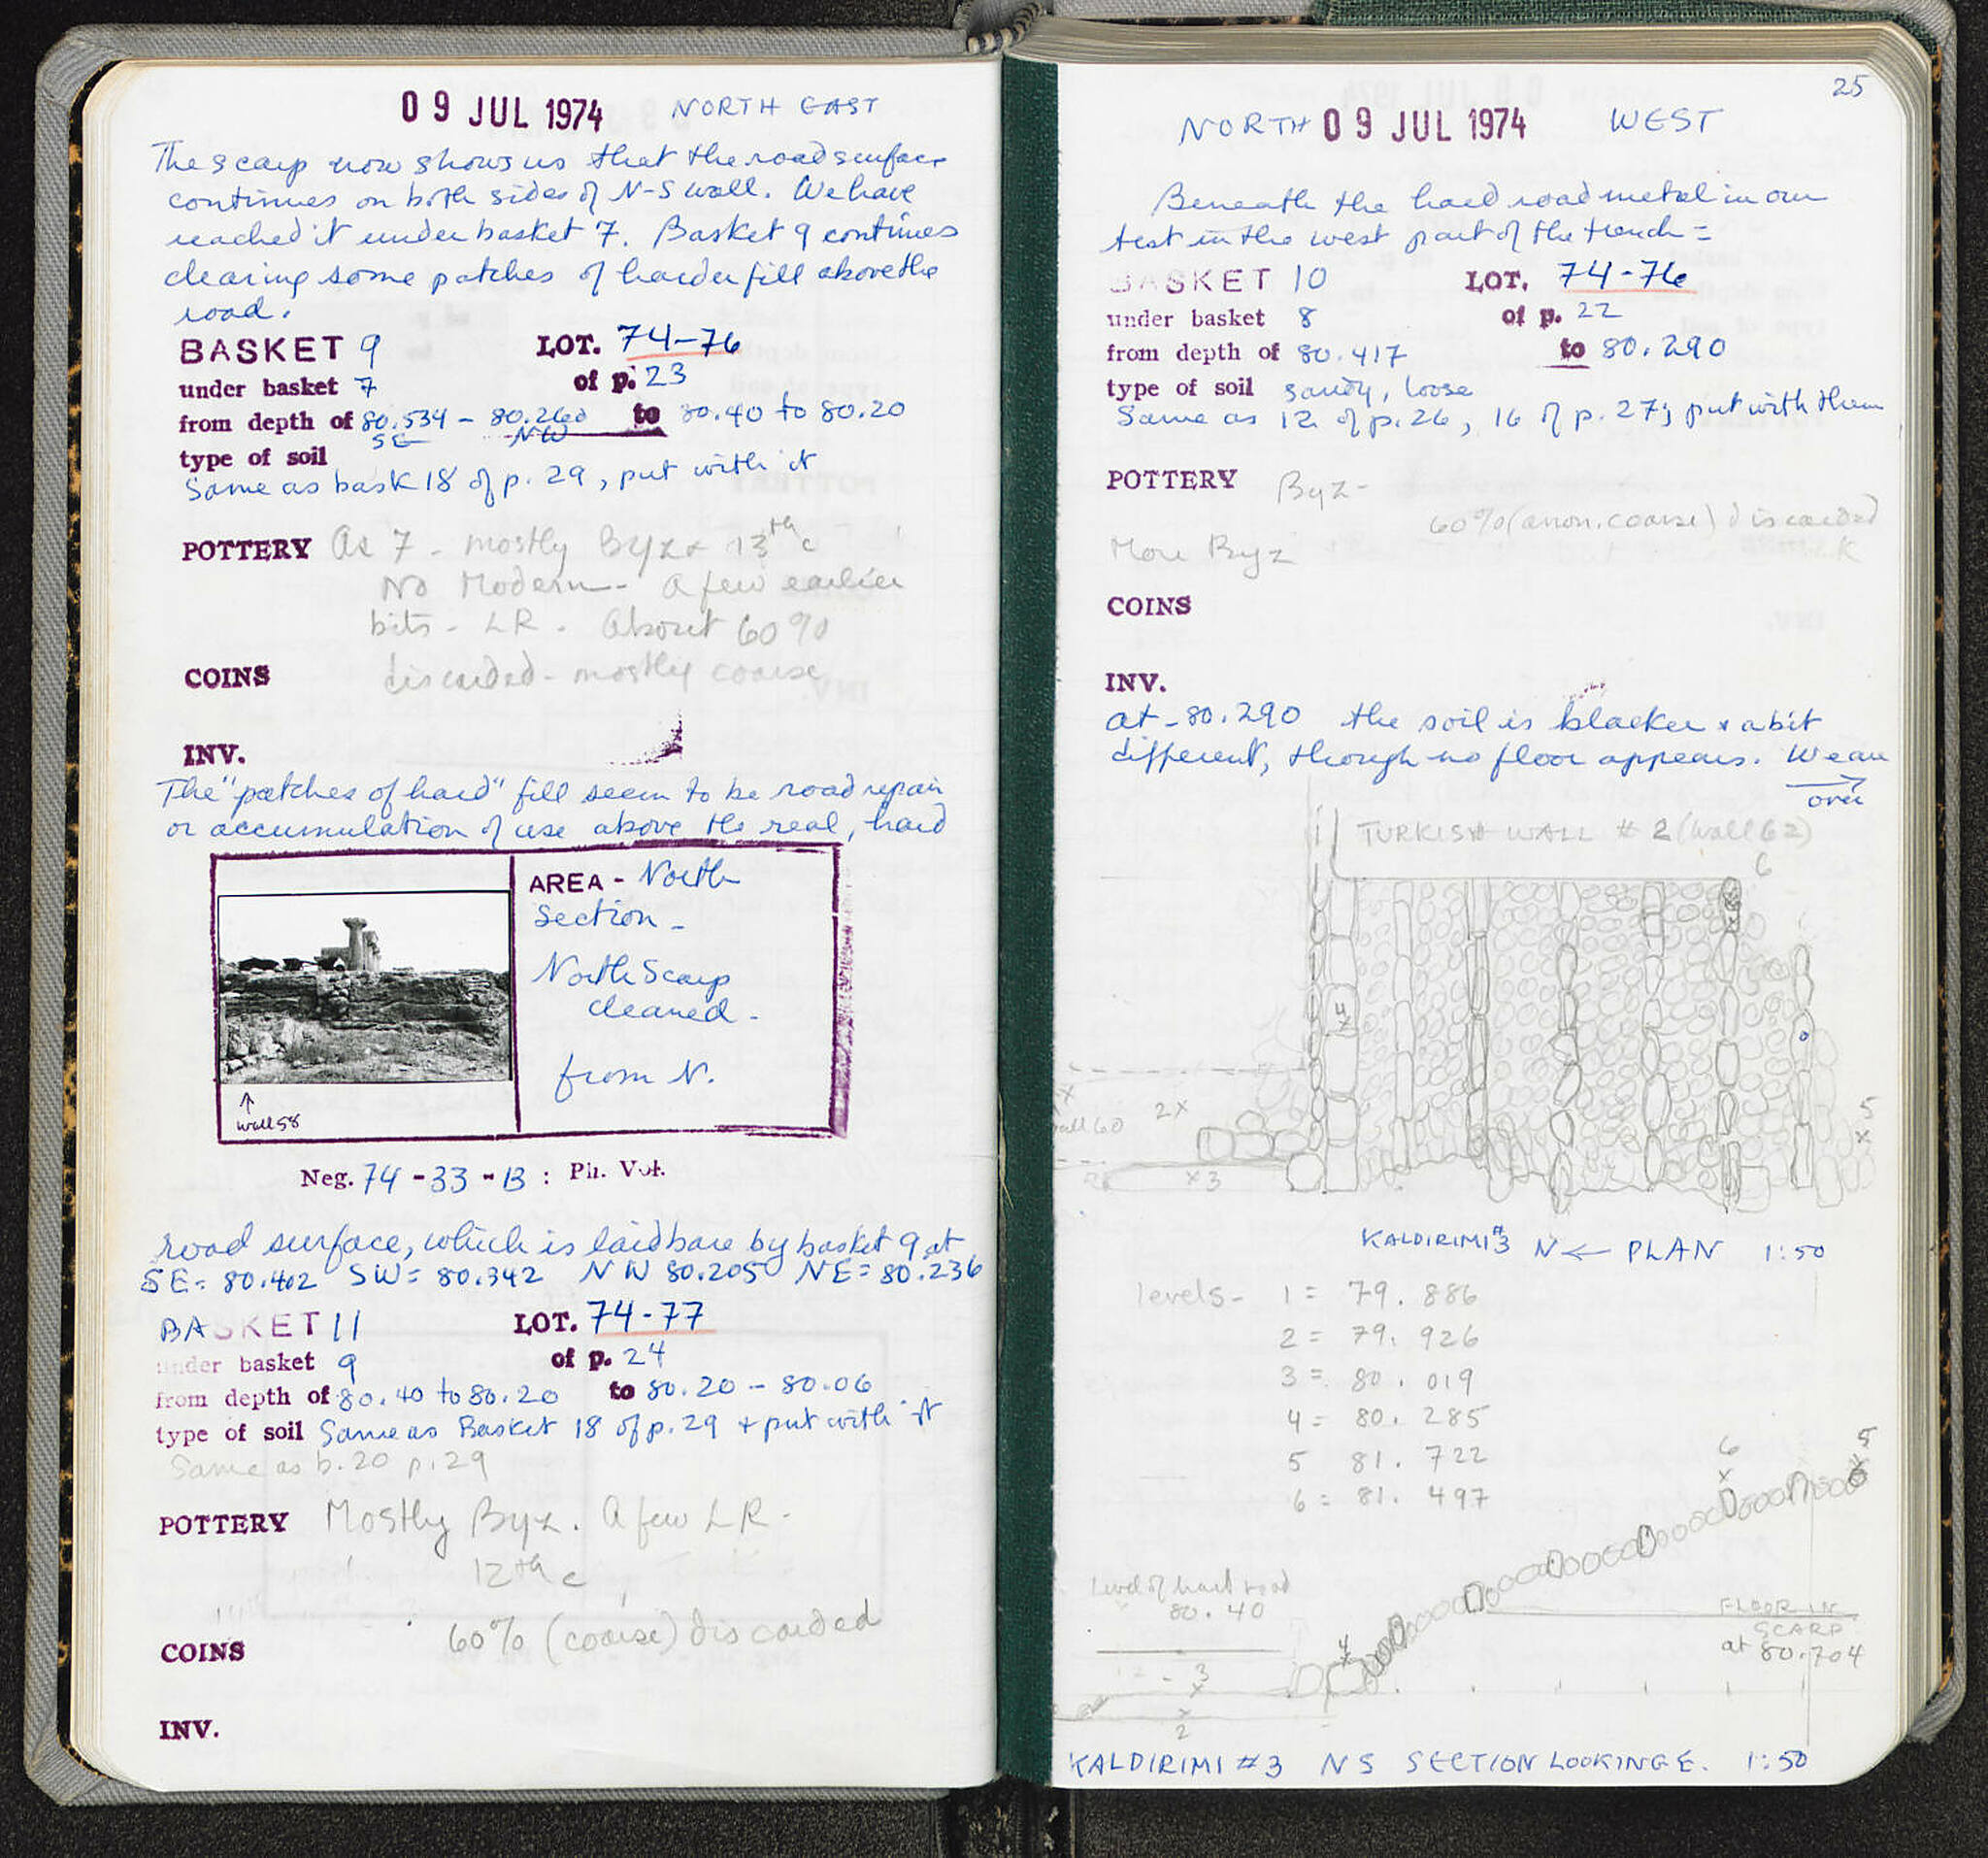 09 JUL 1974 NORTH EAST
The scarp now shows us that the road surface
continues on both sides of N-S wall. We have
reached it under basket 7. Basket 9 continues
clearing some patches of harder fill above the
road.
BASKET 9 LOT. 74-76
under basket 7 of p. 23
from depth of 80.534 - 80.260 to 80.40 to 80.20
SE NW
type of soil
Same as bask 18 of p. 29, put with it
POTTERY As 7 - mostly Byz + 13th c
No Modern - A few earlier
bits - LR. About 60%
COINS discarded - mostly coarse
INV.
The "patches of hard" fill seem to be road repair
or accumulation of use above the real, hard
AREA - North
Section -
North Scarp
cleaned -
from N.
↑
wall 58
Neg. 74-33-13 : Ph. Vol.
road surface, which is laid bare by basket 9 at
SE = 80.402 SW = 80.342 NW 80.205 NE = 80.236
BASKET 11 LOT. 74-77
under basket 9 of p. 24
from depth of 80.40 to 80.20 to 80.20 - 80.06
type of soil Same as Basket 18 of p. 29 + put with it
Same as b. 20 p. 29
POTTERY Mostly Byz. A few LR -
12th c
60% (coarse) discarded
COINS
INV.
25
NORTH 09 JUL 1974 WEST
Beneath the hard road metal in our
test in the west part of the trench =
BASKET 10 LOT. 74-76
under basket 8 of p. 22
from depth of 80.417 to 80.290
type of soil sandy, loose
Same as 12 of p. 26, 16 of p. 27; put with them
POTTERY Byz -
60% (anon. coarse) discarded
More Byz K
COINS
INV.
at - 80.290 the soil is blacker & a bit
different, though no floor appears. We are
over
TURKISH WALL # 2 (wall 62)
6
4
2 x
wall 60
5
x
x 3
KALDIRIMI #3 N ← PLAN 1:50
levels - 1 = 79.886
2 = 79.926
3 = 80.019
4 = 80.285
5 81.722
6 = 81.497
6
x
5
x
level of hard road
80.40
FLOOR IN
SCARP
at 80.704
4
3
x
x
2
KALDIRIMI #3 NS SECTION LOOKING E. 1:50